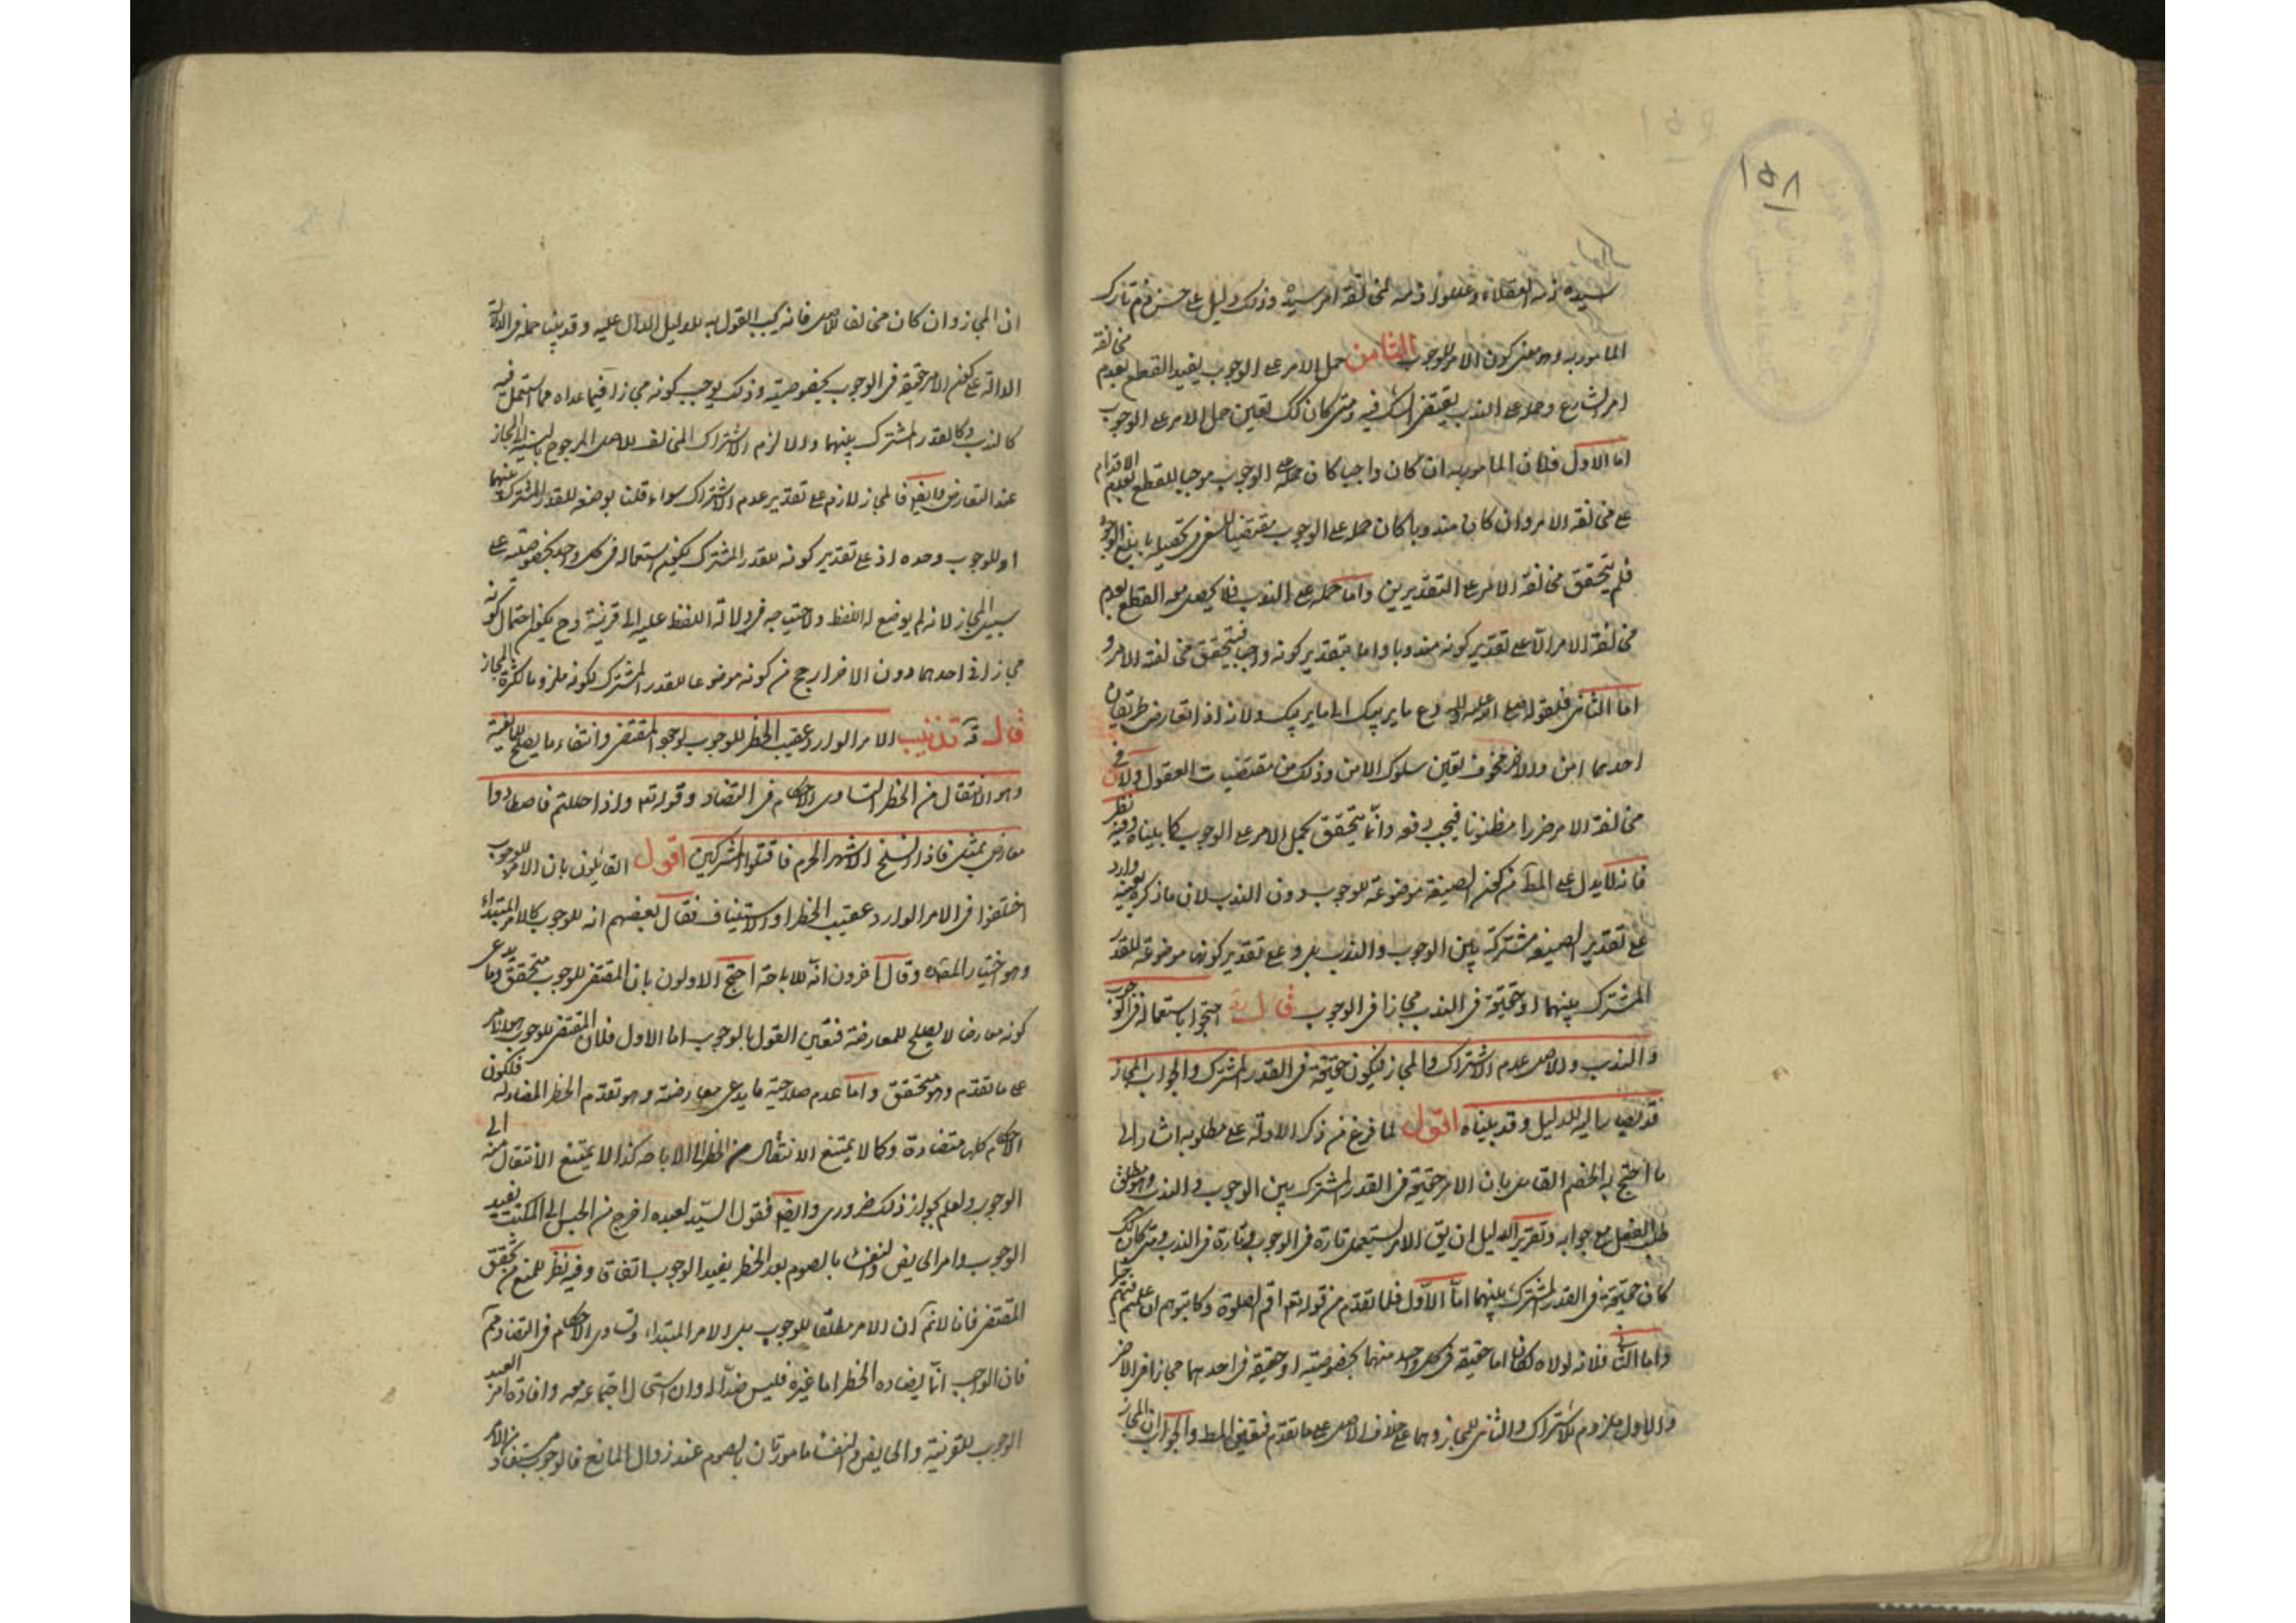 ١٥٨
سيده ذمه العقلاء وعللوا ذمه لمخالفة امر سيده وذلك دليل على حسن ذم تارك
المامور به وهو معنى كون الامر للوجوب الثامن حمل الامر على الوجوب يفيد القطع بعدم مخالفة
امر الشارع وحمله على الندب يقتضى الشك فيه ومتى كان كك تعين حمل الامر على الوجوب
اما الاول فلان المامور به ان كان واجبا كان حمله على الوجوب موجبا للقطع بعدم الاقدام
على مخالفة الامر وان كان مندوبا كان حمله على الوجوب مقتضيا للسعى فى تحصيله بابلغ الوجوه
فلم يتحقق مخالفة الامر على التقديرين واما حمله على الندب فلا يحصل معه القطع بعدم
مخالفة الامر الا على تقدير كونه مندوبا واما بتقدير كونه واجبا فيتحقق مخالفة الامر و
اما الثانى فلقوله صلى الله عليه واله دع ما يريبك الى ما لا يريبك ولانه اذا تعارض طريقان
احدهما امن والاخر مخوف تعين سلوك الامن وذلك من مقتضيات العقول ولان فى
مخالفة الامر ضررا مظنونا فيجب دفعه وانما يتحقق بحمل الامر على الوجوب كما بيناه وفيه نظر
فانه لا يدل على المط من كون الصيغة موضوعة للوجوب دون الندب لان ما ذكره بعينه وارد
على تقدير الصيغة مشتركة بين الوجوب والندب بل وعلى تقدير كونها موضوعة للقدر
المشترك بينهما او حقيقة فى الندب مجازا فى الوجوب قال احتجوا باستعماله فى الوجوب
والندب والاصل عدم الاشتراك والمجاز فيكون حقيقة فى القدر المشترك والجواب المجاز
قد يصار اليه للدليل وقد بيناه اقول لما فرغ من ذكر الادلة على مطلوبه اشار الى
ما احتج به الخصم القائل بان الامر حقيقة فى القدر المشترك بين الوجوب والندب وهو مطلق
طلب الفعل مع جوابه وتقرير الدليل ان يق الامر استعمل تارة فى الوجوب وتارة فى الندب ومتى كان كك
كان حقيقة فى القدر المشترك بينهما اما الاول فلما تقدم من قوله تعه اقم الصلوة وكاتبوهم ان علمتم فيهم خيرا
واما الثانى فلانه لولاه لكان اما حقيقة فى كل واحد منهما بخصوصيته او حقيقة فى احدهما مجازا فى الاخر
والاول ملزوم للاشتراك والثانى للمجاز وهما على خلاف الاصل على ما تقدم فتعين المط والجواب ان المجاز
ان المجاز وان كان مخالف للاصل فانه يجب القول به للدليل الدال عليه وقد بينا جملة من الادلة
الدالة على كون الامر حقيقة فى الوجوب بخصوصيته وذلك يوجب كونه مجازا فيما عداه مما استعمل فيه
كالندب وكالقدر المشترك بينهما والا لزم الاشتراك المخالف للاصل المرجوح بالنسبة الى المجاز
عند التعارض وايض فالمجاز لازم على تقدير عدم الاشتراك سواء قلنا بوضعه للقدر المشترك بينهما
او للوجوب وحده اذ على تقدير كونه للقدر المشترك يكون استعماله فى كل واحد بخصوصيته على
سبيل المجاز لانه لم يوضع له اللفظ ولاحتياجه فى دلالة اللفظ عليه الى قرينة وح يكون احتمال كونه
مجازا فى احدهما دون الاخر ارجح من كونه موضوعا للقدر المشترك لكونه ملزوما لكثرة المجاز
قال تذنيب الامر الوارد عقيب الحظر للوجوب لوجود المقتضى وانتفاء ما يصلح للمانعية
وهو الانتقال من الحظر لتساوى الاحكام فى التضاد وقوله تعه واذا حللتم فاصطادوا
معارض بمثل فاذا انسلخ الاشهر الحرم فاقتلوا المشركين اقول القائلون بان الامر للوجوب
اختلفوا فى الامر الوارد عقيب الحظر او الاستيناف فقال بعضهم انه للوجوب كالامر المبتداء
وهو اختيار المصنف وقال اخرون انه للاباحة احتج الاولون بان المقتضى للوجوب متحقق وما يدعى
كونه معارضا لا يصلح للمعارضة فتعين القول بالوجوب اما الاول فلان المقتضى للوجوب هو الامر
على ما تقدم وهو متحقق واما عدم صلاحية ما يدعى معارضته وهو تقدم الحظر المضاد له فلكون
الاحكام كلها متضادة وكما لا يمتنع الانتقال من الحظر الى الاباحة كذا لا يمتنع الانتقال منه الى
الوجوب والعلم بجواز ذلك ضرورى وايض فقول السيد لعبده اخرج من الحبس الى المكتب يفيد
الوجوب وامر الحايض والنفساء بالصوم بعد الحظر يفيد الوجوب اتفاقا وفيه نظر للمنع من تحقق
المقتضى فانا لانم ان الامر مطلقا للوجوب بل الامر المبتداء وتساوى الاحكام فى التضاد مم
فان الواجب انما يضاده الحظر اما غيره فليس ضدا له وان استحال اجتماعه معه وافادة امر العبد
الوجوب للقرينة والحايض والنفساء مامورتان بالصوم عند زوال المانع فالوجوب مستفاد من الامر